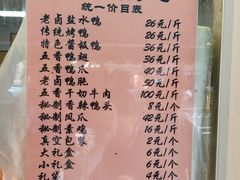 统一价目表
老卤盐水鸭 26元/斤
传统烤鸭 26元/斤
特色酱板鸭 56元/斤
五香鸭翅 56元/斤
五香鸭爪 40元/斤
老卤鸭肫 50元/斤
五香干切牛肉 100元/斤
秘制香辣鸭头 8元/个
秘制凤爪 42元/斤
秘制素鸡 16元/斤
真空包装 2元/个
大礼盒 6元/个
小礼盒 4元/个
礼袋